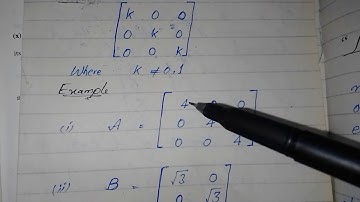 k 0 0
0 k 0
0 0 k
where k ≠ 0, 1
Example
(i) A = 4 0 0
0 4
0 0 4
(ii) B = √3 0
0 √3